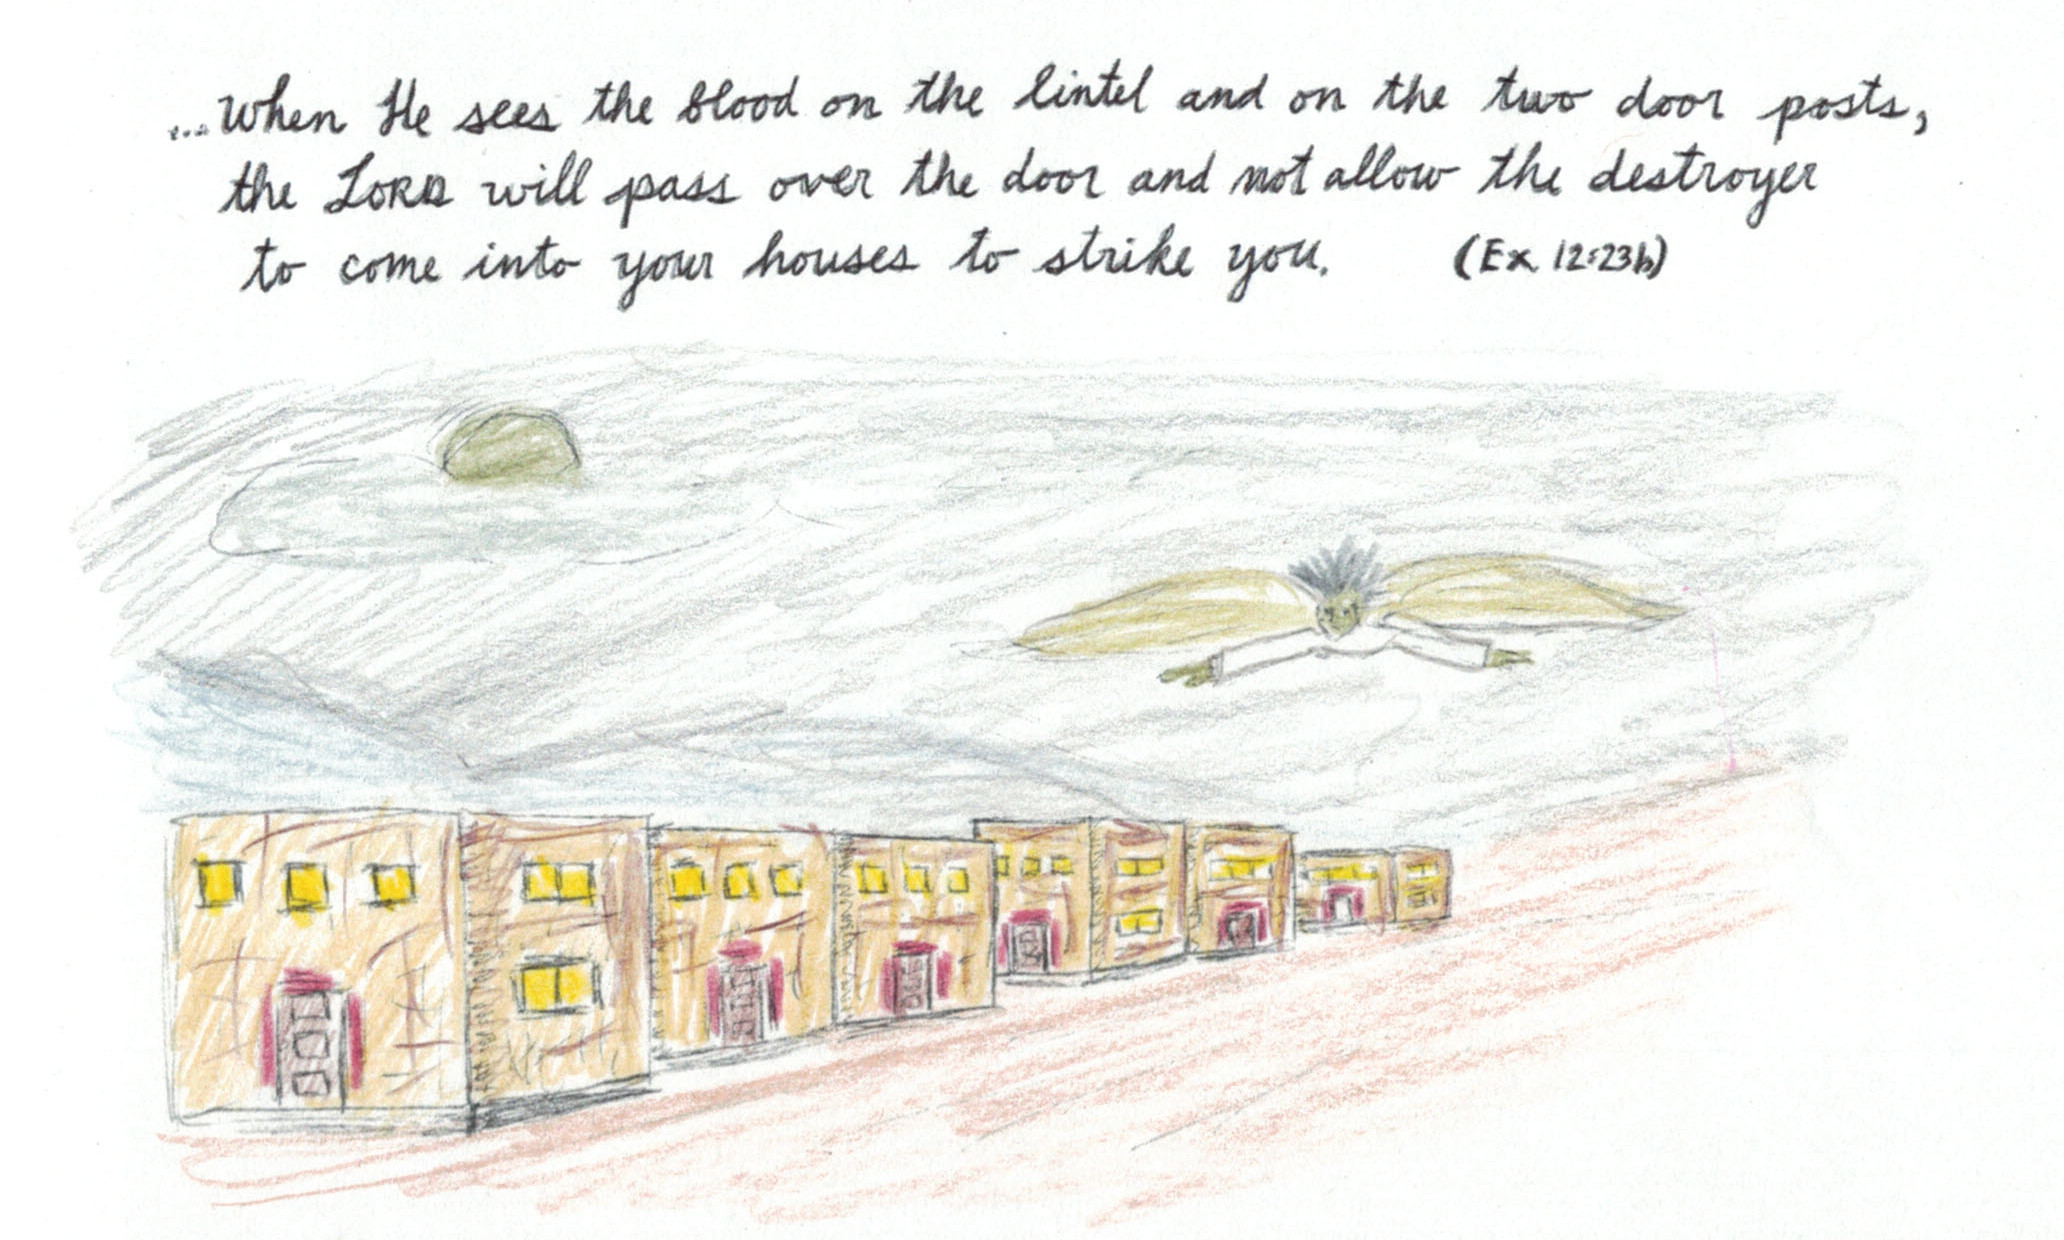 ...When He sees the blood on the lintel and on the two door posts,
the LORD will pass over the door and not allow the destroyer
to come into your houses to strike you. (Ex 12:23b)